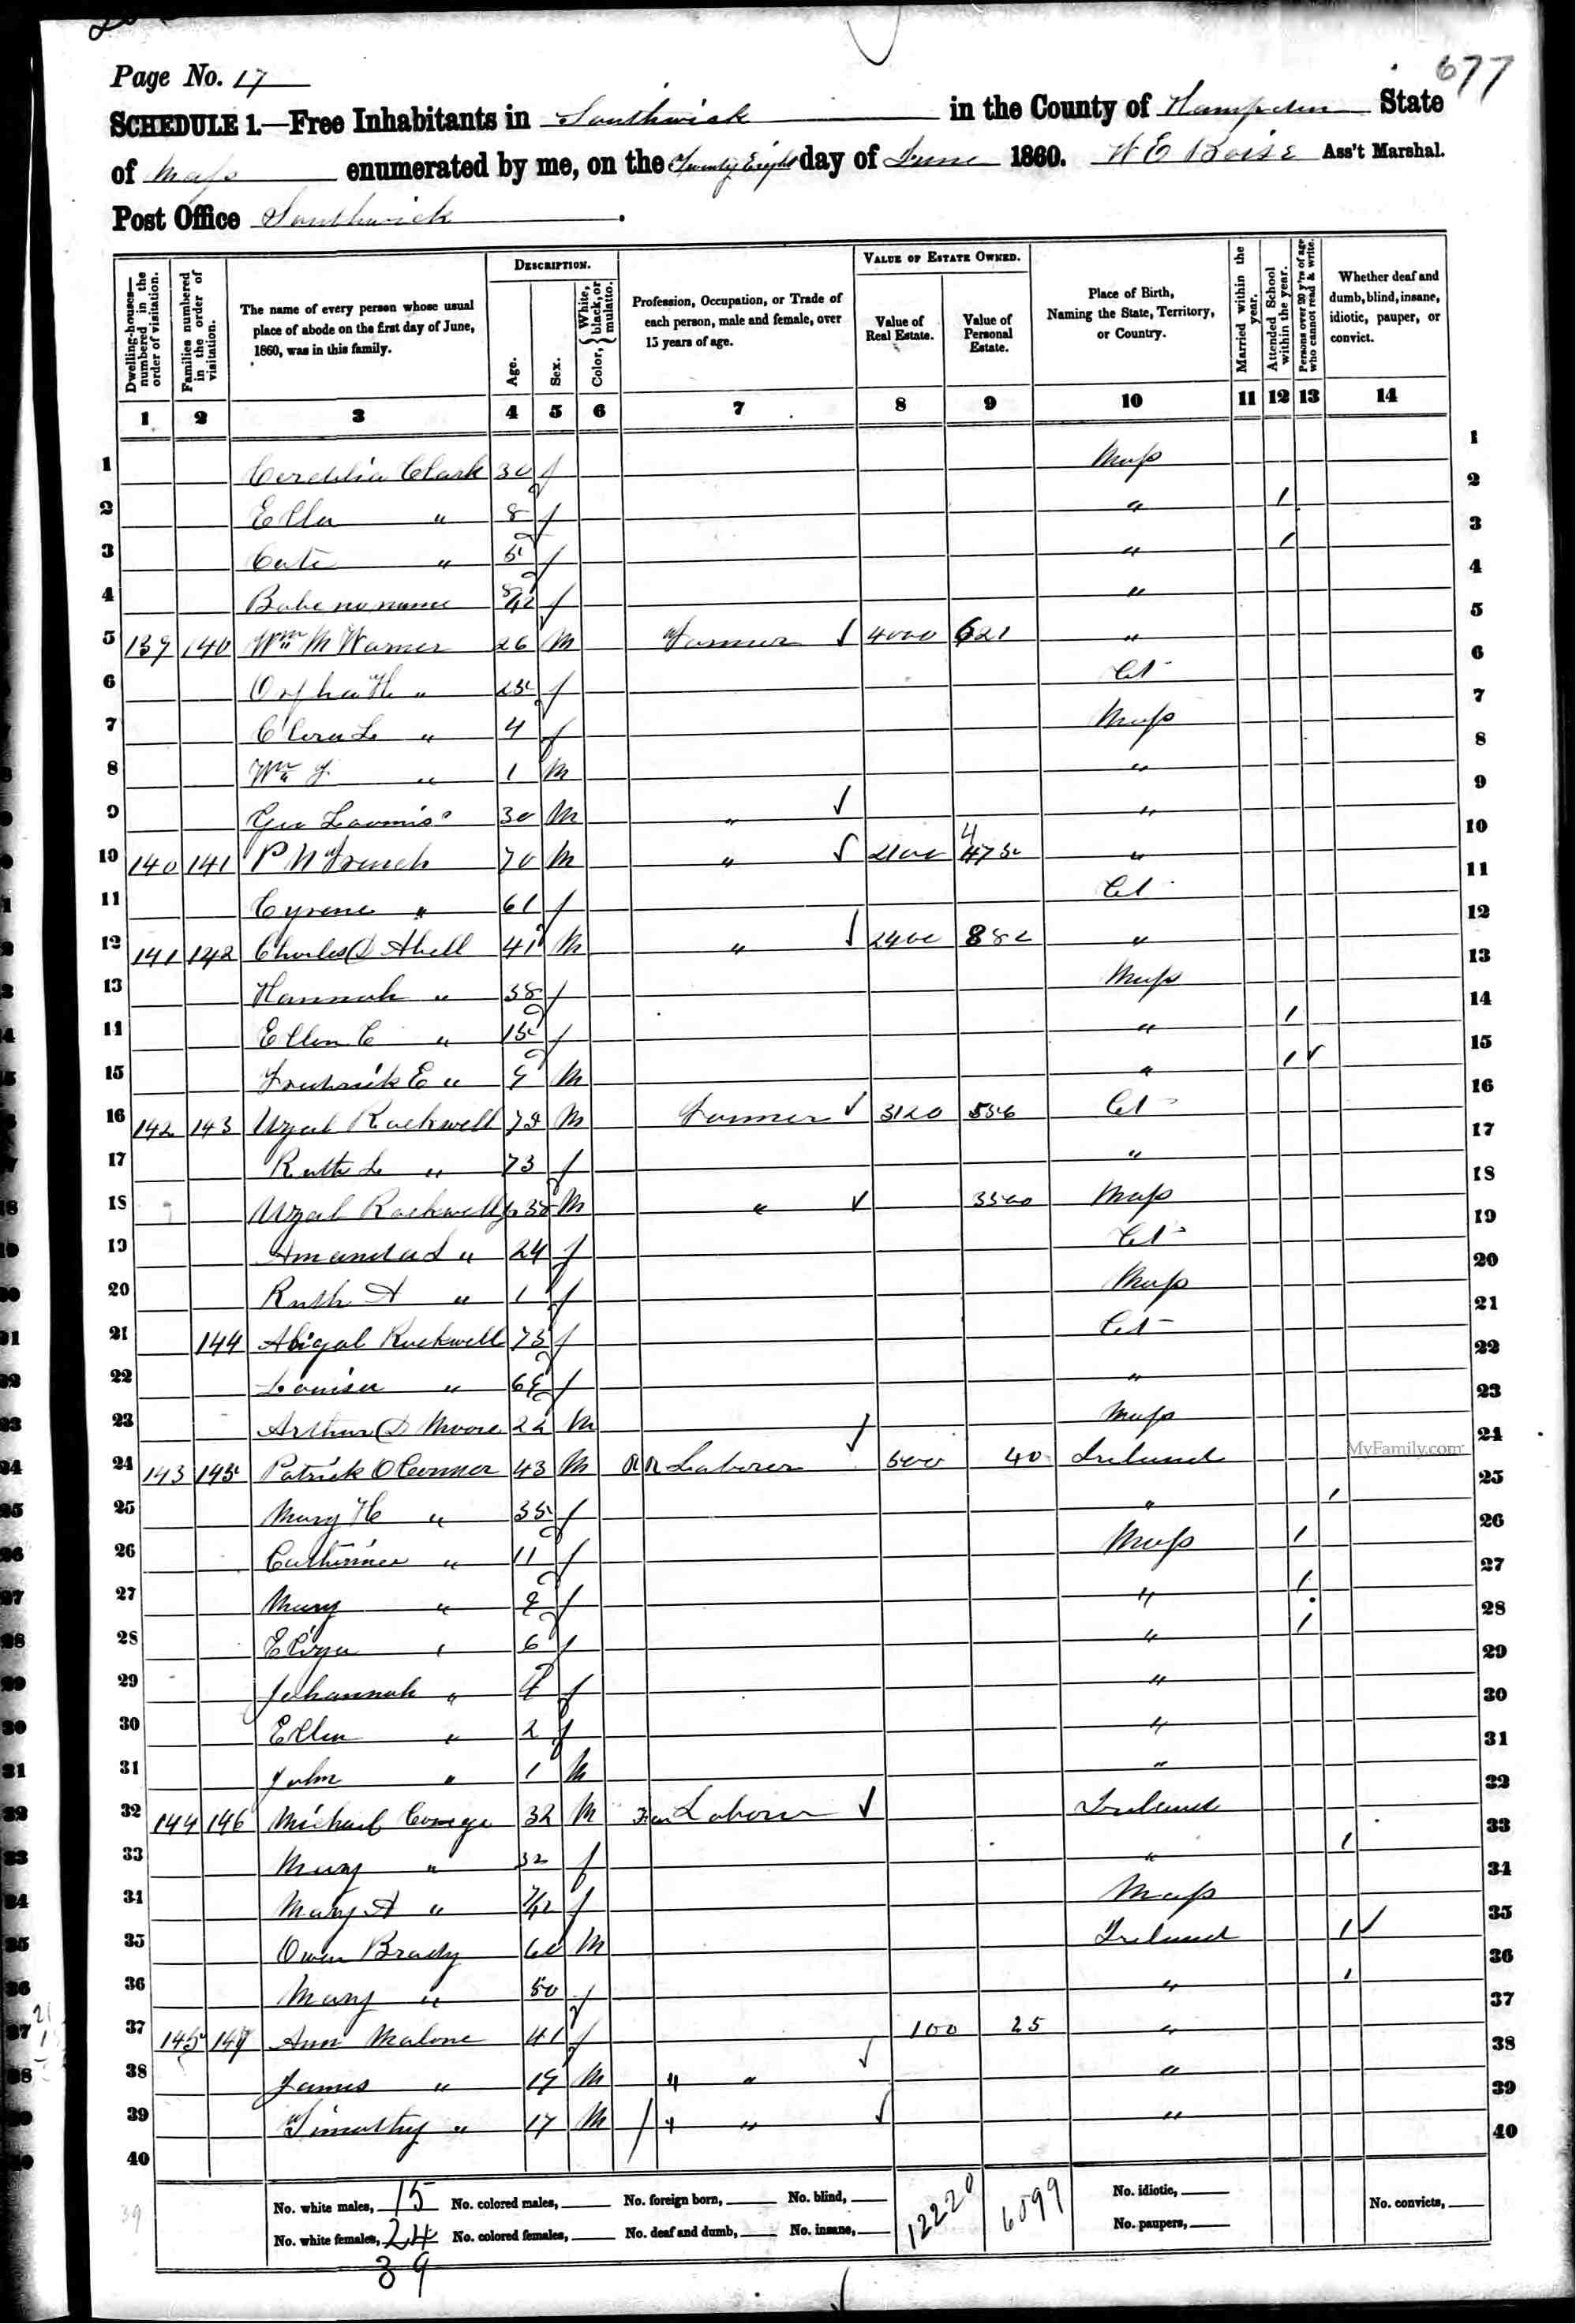 Page No. 17
677
SCHEDULE 1.—Free Inhabitants in Southwick in the County of Hampden State
of Mass enumerated by me, on the Twenty Eight day of June 1860. W E Boise Ass't Marshal.
Post Office Southwick.
Dwelling-houses—numbered in the order of visitation.
Families numbered in the order of visitation.
The name of every person whose usual place of abode on the first day of June, 1860, was in this family.
DESCRIPTION.
Age.
Sex.
Color, White, black, or mulatto.
Profession, Occupation, or Trade of each person, male and female, over 15 years of age.
VALUE OF ESTATE OWNED.
Value of Real Estate.
Value of Personal Estate.
Place of Birth, Naming the State, Territory, or Country.
Married within the year.
Attended School within the year.
Persons over 20 y'rs of age who cannot read & write.
Whether deaf and dumb, blind, insane, idiotic, pauper, or convict.
1 2 3 4 5 6 7 8 9 10 11 12 13 14
1 Cordelia Clark 30 f Mass 1
2 Ella " 8 f " 1 2
3 Cate " 5 f " 1 3
4 Babe no name 8/12 f " 4
5 139 140 Wm M Warner 26 M Farmer 4000 621 " 5
6 Orpha H " 25 f Ct 6
7 Clera L " 4 f Mass 7
8 Wm " 1 M " 8
9 Geo Loomis 30 M " " 9
10 140 141 P N French 70 M " 2100 475 " 10
11 Cyrene " 61 f Ct 11
12 141 142 Charles D Abell 41 M " 2400 882 " 12
13 Hannah " 38 f Mass 13
14 Ellen C " 15 f " 1 14
15 Frederick E " 9 M " 1 15
16 142 143 Uzal Rockwell M Farmer 3120 556 Ct 16
17 Ruth L " 73 f " 17
18 Uzal Rockwell Jr 38 M " 3500 Mass 18
19 Amanda L " 24 f Ct 19
20 Ruth A " 1 f Mass 20
21 144 Abigal Rockwell 75 f Ct 21
22 Louisa " 69 f " 22
23 Arthur D Moore 22 M Mass 23
24 143 145 Patrick OConner 43 M R R Laborer 500 40 Ireland 24
MyFamily.com
25 Mary H " 35 f " 1 25
26 Catherine " 11 f Mass 1 26
27 Mary " 9 f " 1 27
28 Eliza " 6 f " 1 28
29 Johannah " 4 f " 29
30 Ellen " 2 f " 30
31 John " 1 M " 31
32 144 146 Michael 32 M Laborer Ireland 32
33 Mary " 32 f " 1 33
34 Mary A " 7/12 f Mass 34
35 Owen Brady 60 M Ireland 1 35
36 Mary " 50 f " 1 36
37 145 147 Ann Malone 41 f 100 25 " 37
38 James " 19 M " " " 38
39 Timothy " 17 M " " " 39
40 40
No. white males, 15 No. colored males, No. foreign born, No. blind, 12220 6599 No. idiotic,
No. white females, 24 No. colored females, No. deaf and dumb, No. insane, No. paupers, No. convicts,
39